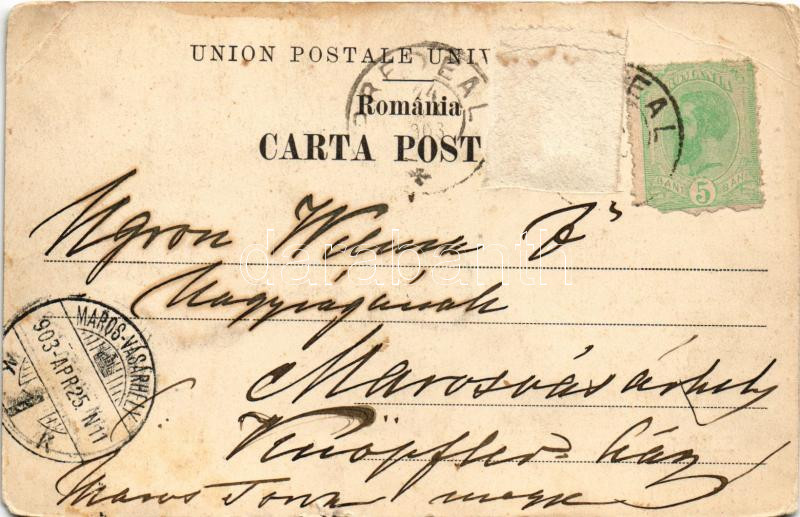 UNION POSTALE UNIV
PREDEAL
24
903
EAL
ROMANIA
BANI 5 BANI
România
CARTA POST
Ugron Vilma Ő
Nagyságának
Marosvásárhely
Knöpfler-ház
Maros Torda megye
MAROS-VÁSÁRHELY
903-APR 25. N11
darabanth